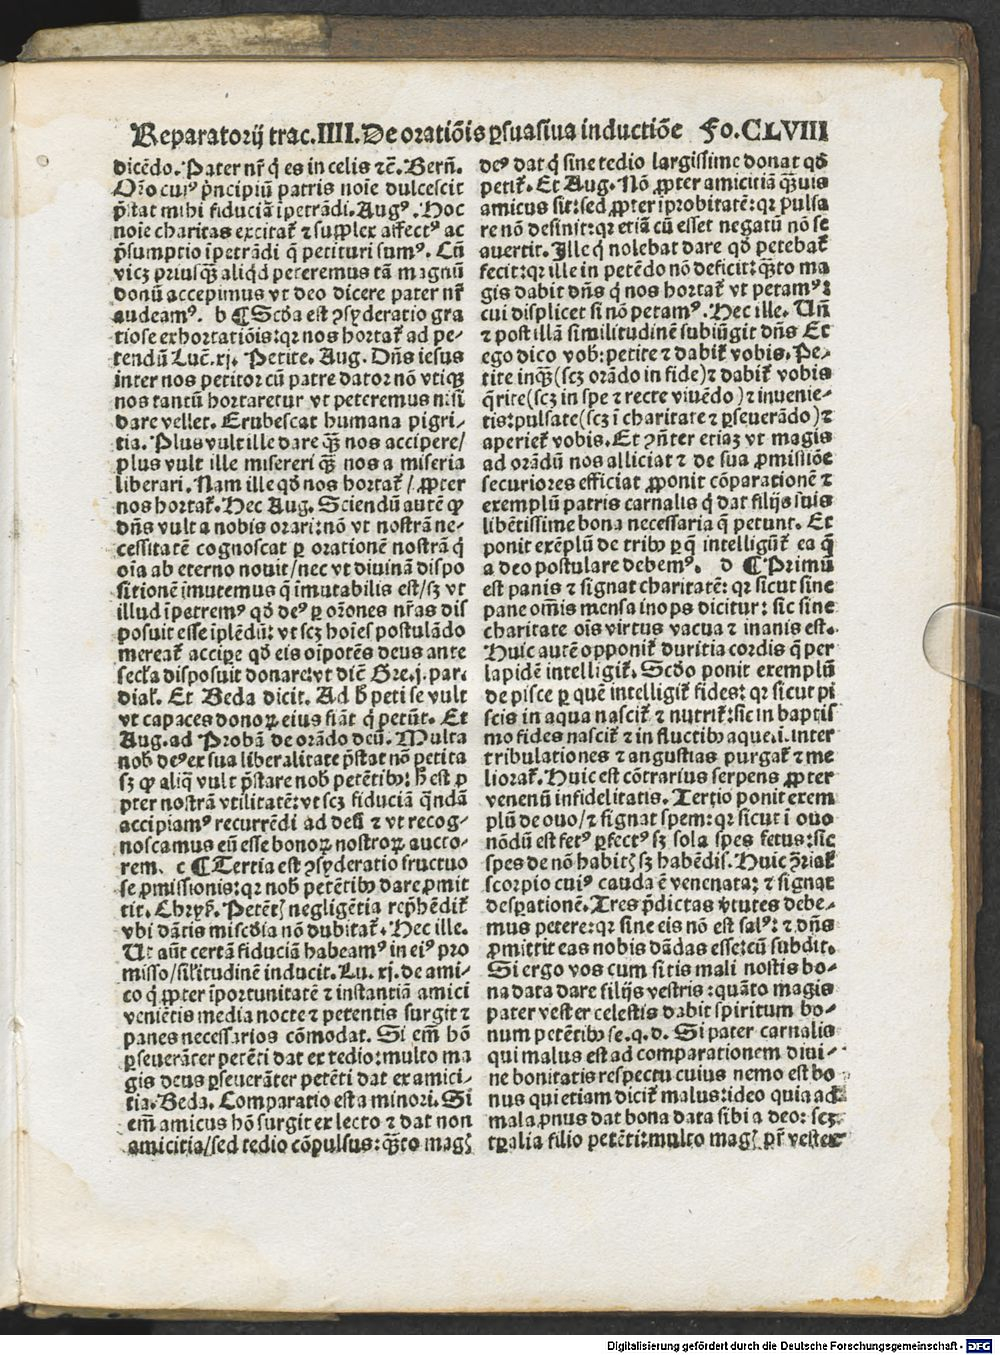 Reparatorij trac.IIII.De oratiōis ꝑsuasiua inductiōe Fo.CLVIII
dicēdo. Pater nr̄ q̇ es in celis ⁊c̄. Berñ.
Oīo cuiꝰ p̄ncipiū patris noīe dulcescit
p̄stat mihi fiduciā īpetrādi. Augꝰ. Hoc
noīe charitas excitat᷑ ⁊ supplex affectꝰ ac
p̄sumptio īpetrādi q̇ petituri sumꝰ. Cū
vicȝ priusq̄ȝ aliq̇d peteremus tā magnū
donū accepimus vt deo dicere pater nr̄
audeamꝰ. b ¶ Scd̄a est ꝯsyderatio gra
tiose exhortatiōis: qꝛ nos hortat᷑ ad pe⸗
tendū Luc̄.xj. Petite. Aug. Dn̄s iesus
inter nos petitor cū patre dator nō vtiqȝ
nos tantū hortaretur vt peteremus nisi
dare vellet. Erubescat humana pigri⸗
tia. Plus vult ille dare q̄ȝ nos accipere/
plus vult ille misereri q̄ȝ nos a miseria
liberari. Nam ille qd̄ nos hortat᷑/ ꝓpter
nos hortat᷑. Hec Aug. Sciendū autē ꝙ
dn̄s vult a nobis orari: nō vt nostrā ne⸗
cessitatē cognoscat ꝑ orationē nostrā q̇
oīa ab eterno nouit/nec vt diuinā dispo
sitionē īmutemus q̄ īmutabilis est/sȝ vt
illud īpetremꝰ qd̄ deꝰ ꝑ oīones nr̄as dis
posuit esse īplēdū: vt scȝ hoīes postulādo
mereat᷑ accipe qd̄ eis oīpotēs deus ante
secl̄a disposuit donare: vt dic̄ Gre.j. par.
dial. Et Beda dicit. Ad h̄ peti se vult
vt capaces donoꝝ eius fiāt q̇ petūt. Et
Aug. ad Probā de orādo deū. Multa
nob̄ deꝰ ex sua liberalitate p̄stat nō petita
sȝ ꝙ aliq̄ vult p̄stare nob̄ petētibꝰ: h̄ est ꝓ
pter nostrā vtilitatē: vt scȝ fiduciā q̄ndā
accipiamꝰ recurrēdi ad deū ⁊ vt recog⸗
noscamus eū esse bonoꝝ nostroꝝ aucto⸗
rem. c ¶ Tertia est ꝯsyderatio fructuo
se ꝓmissionis: qꝛ nob̄ petētibꝰ dare ꝓmit
tit. Chryſ. Petēt negligētia rep̄hēdit᷑
vbi dātis miscd̄ia nō dubitat᷑. Hec ille.
Ut aūt certā fiduciā habeamꝰ in eiꝰ pro
misso/sil̄itudinē inducit. Lu. xj. de ami⸗
co q̇ ꝓpter īportunitatē ⁊ instantiā amici
veniētis media nocte ⁊ petentis surgit ⁊
panes necessarios cōmodat. Si em̄ hō
ꝑseuerāter petēti dat ex tedio: multo ma
gis deus ꝑseuerāter petēti dat ex amici⸗
tia. Beda. Comparatio est a minori. Si
em̄ amicus hō surgit ex lecto ⁊ dat non
amicitia/sed tedio cōpulsus: q̄ȝto mag
deꝰ dat q̇ sine tedio largissime donat qd̄
petit᷑. Et Aug. Nō ꝓpter amicitiā q̄ȝuis
amicus sit: sed ꝓpter īprobitatē: qꝛ pulsa
re nō desinit: qꝛ etiā cū esset negatū nō se
auertit. Ille q̇ nolebat dare qd̄ petebat᷑
fecit: qꝛ ille in petēdo nō deficit: q̄ȝto ma
gis dabit dn̄s q̇ nos hortat᷑ vt petamꝰ:
cui displicet si nō petamꝰ. Hec ille. Uñ
⁊ post illā similitudinē subiūgit dn̄s Et
ego dico vob̄: petite ⁊ dabit᷑ vobis. Pe⸗
tite inq̄ȝ (scȝ orādo in fide) ⁊ dabit᷑ vobis
q̄rite (scȝ in spe ⁊ recte viuēdo) ⁊ inuenie⸗
tis: pulsate (scȝ ī charitate ⁊ ꝑseuerādo) ⁊
aperiet᷑ vobis. Et ꝯñter etiaȝ vt magis
ad orādū nos alliciat ⁊ de sua ꝓmissiōe
securiores efficiat ꝓponit cōparationē ⁊
exemplū patris carnalis q̇ dat filijs suis
libētissime bona necessaria q̄ petunt. Et
ponit exēplū de tribꝰ ꝑ q̄ intelligūt᷑ ea q̄
a deo postulare debemꝰ. d ¶ Primū
est panis ⁊ signat charitatē: qꝛ sicut sine
pane om̄is mensa inops dicitur: sic sine
charitate oīs virtus vacua ⁊ inanis est.
Huic autē opponit᷑ duritia cordis q̄ per
lapidē intelligit᷑. Scd̄o ponit exemplū
de pisce ꝑ quē intelligit᷑ fides: qꝛ sicut pi
scis in aqua nascit᷑ ⁊ nutrit᷑: sic in baptis
mo fides nascit᷑ ⁊ in fluctibꝰ aque .i. inter
tribulationes ⁊ angustias purgat᷑ ⁊ me
liorat᷑. Huic est cōtrarius serpens ꝓpter
venenū infidelitatis. Tertio ponit exem
plū de ouo/ ⁊ signat spem: qꝛ sicut ī ouo
nōdū est fetꝰ ꝑfectꝰ sȝ sola spes fetus: sic
spes de nō habit sȝ habēdis. Huic ꝯ̄riat᷑
scorpio cuiꝰ cauda ē venenata; ⁊ signat
desꝑationē. Tres p̄dictas v̄tutes debe⸗
mus petere: qꝛ sine eis nō est salꝰ: ⁊ dn̄s
ꝓmittit eas nobis dādas esse: cū subdit.
Si ergo vos cum sitis mali nostis bo⸗
na data dare filijs vestris: quāto magis
pater vester celestis dabit spiritum bo⸗
num petētibꝰ se. q. d. Si pater carnalis
qui malus est ad comparationem diui⸗
ne bonitatis respectu cuius nemo est bo
nus qui etiam dicit᷑ malus: ideo quia ad
mala pnus dat bona data sibi a deo: scȝ
tꝑalia filio petēti: multo mag pr̄ vester
Digitalisierung gefördert durch die Deutsche Forschungsgemeinschaft - DFG